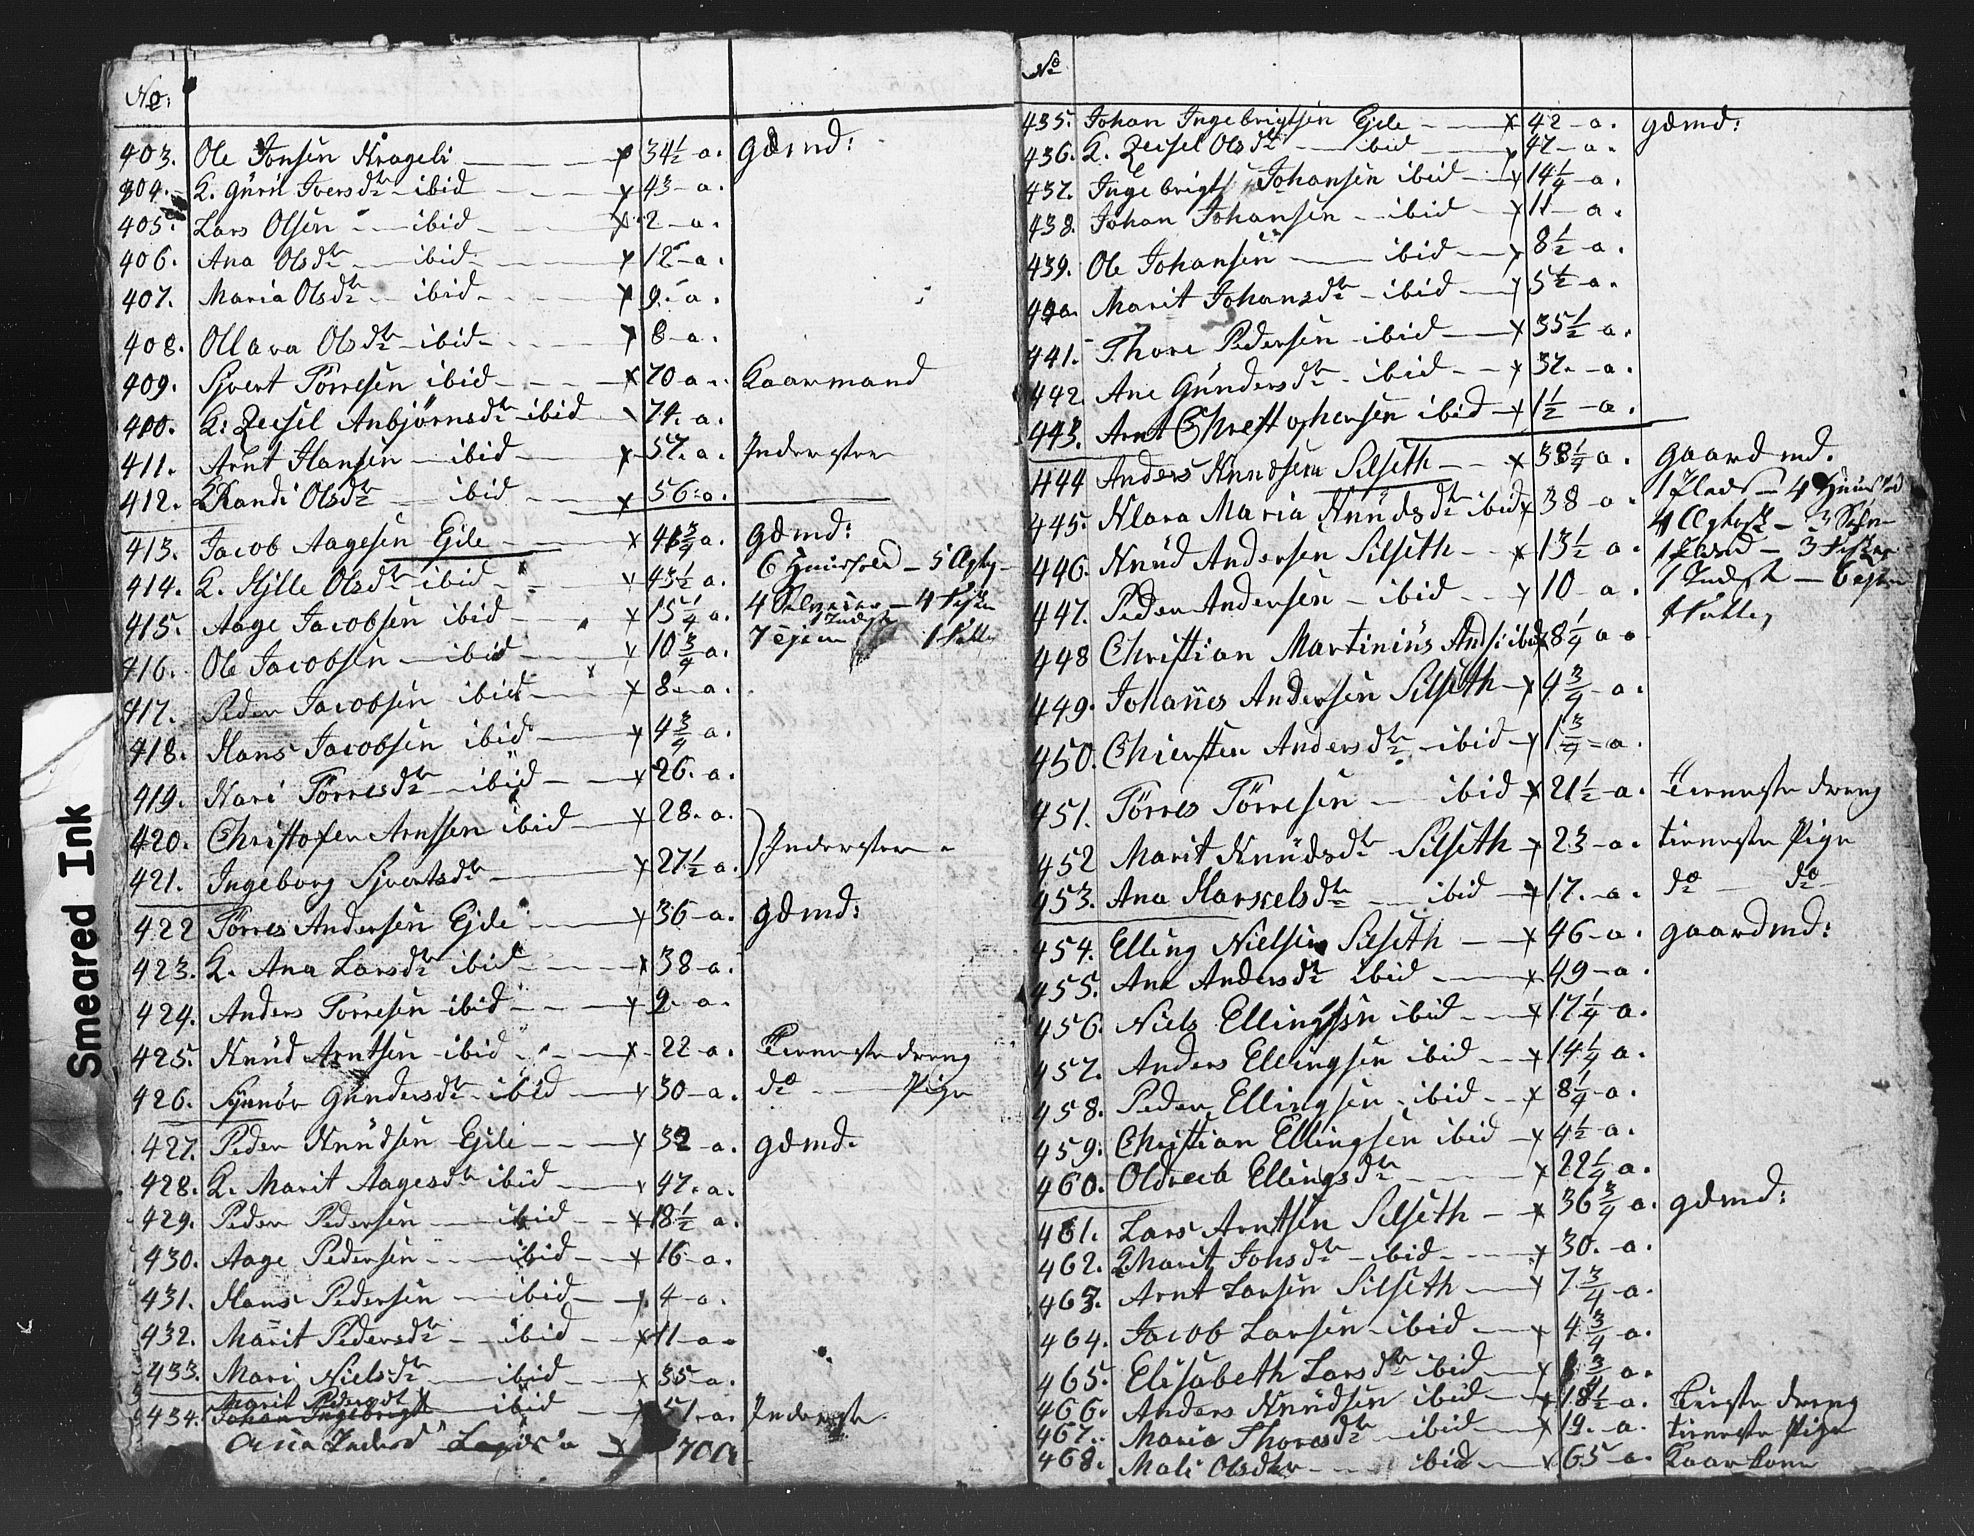 No:
403. Ole Jonsen Krageli x 34½ a. gdmd:
404. K. Guru Iversdtr ibid x 43 a.
405. Lars Olsen ibid x 2 a.
406. Ana Olsdtr ibid x 12 a.
407. Maria Olsdtr ibid x 9. a.
408. Ollava Olsdtr ibid x 8 a.
409. Sjvert Törresen ibid x 70 a. Kaarmand
400. K: Zeisel Anbjörnsdtr ibid x 74. a.
411. Arnt Hansen ibid x 57. a. Inderster
412. K Randi Olsdtr ibid x 56: a.
413. Jacob Aagesen Ejde x 46¾ a. gdmd:
414. K. Hille Olsdtr ibid x 43½ a. 6 Huusfold – 5 Ægty
415. Aage Jacobsen ibid x 15¼ a. 4 Sönner – 4
416. Ole Jacobsen ibid x 10¾ a. 7 ejern
417. Peder Jacobsen ibid x 8 a.
418. Hans Jacobsen ibid x 4¾ a.
419. Kari Törresdtr ibid x 26. a.
420. Christofer Arntsen ibid x 28. a.
421. Ingeborg Sjvertsdtr x 27½ a. Inderster
422 Törres Andersen Ejde x 36 a. gdmd:
423. K. Ana Larsdtr ibid x 38 a.
424. Anders Torresen ibid x 9. a.
425. Knud Arntsen ibid x 22 a. Tieneste dreng
426. Synnöv Gundersdtr ibid x 30 a. do Pige
427. Peder Knudsen Ejde x 32 a. gdmd.
428. K. Marit Aagesdtr ibid x 47. a.
429. Peder Pedersen ibid x 18½ a.
430. Aage Pedersen ibid x 16 a.
431. Hans Pedersen ibid x 4 a.
432. Marit Pedersdtr ibid x 11 a.
433. Mari Nielsdtr ibid x 35 a.
Marit Pedersdt
434. Johan Ingebrigt ibid 51 a. Inderste
x 70 a.
No
435. Johan Ingebrigtsen Ejde x 42 a. gdmd:
436. K. Zeisel Olsdtr ibid x 47 a.
437. Ingebrigt Johansen ibid x 14¼ a.
438. Johan Johansen ibid x 11 a.
439. Ole Johansen ibid x 8½ a.
440. Marit Johansdtr ibid x 5½ a.
441. Thore Pedersen ibid x 35½ a.
442. Ane Gundersdtr ibid x 37. a.
443. Arnt Christophersen ibid x 1½ a.
444 Anders Knudsen Silseth x 38¼ a. gaardmd.
445. Klara Maria Knudsdtr ibid x 38 a. 1 Plads – 4 Huusfod
446. Knud Andersen Silseth x 13½ a.
447. Peder Andersen ibid x 10 a.
448 Christian Martinius Andsi ibid x 8¼ a
449. Johannes Andersen Silseth x 4¾ a.
450. Chiersten Andersdtr ibid x 1¾ a.
451. Törres Törresen ibid x 21½ a. Tieneste dreng
452 Marit Knudsdtr Silseth x 23 a. tieneste Pige
453. Ana Harkelsdtr ibid x 17. a. do do
454. Elling Nielsen Silseth x 46 a. gaardmd:
455. Ane Andersdtr ibid x 49 a.
456. Niels Ellingsen ibid x 17¼ a.
457. Anders Ellingsen ibid x 14¼ a.
458. Peder Ellingsen ibid x 8¼ a.
459. Christian Ellingsen ibid x 4½ a.
460. Oldreeb Ellingsdtr x 22¼ a.
461. Lars Arntsen Silseth x 36¾ a. gdmd:
462. K Marit Jonsdtr ibid x 30. a.
463. Arnt Larsen Silseth x 7¾ a.
464. Jacob Larsen ibid x 4¾ a.
465. Elisabeth Larsdtr ibid x 1¾ a.
466. Anders Knudsen ibid x 18½ a. Tienste dreng
467. Maria Thoresdtr ibid x 19. a. tieneste Pige
468. Mali Olsdtr ibid x 65 a. Kaarkone
Smeared Ink